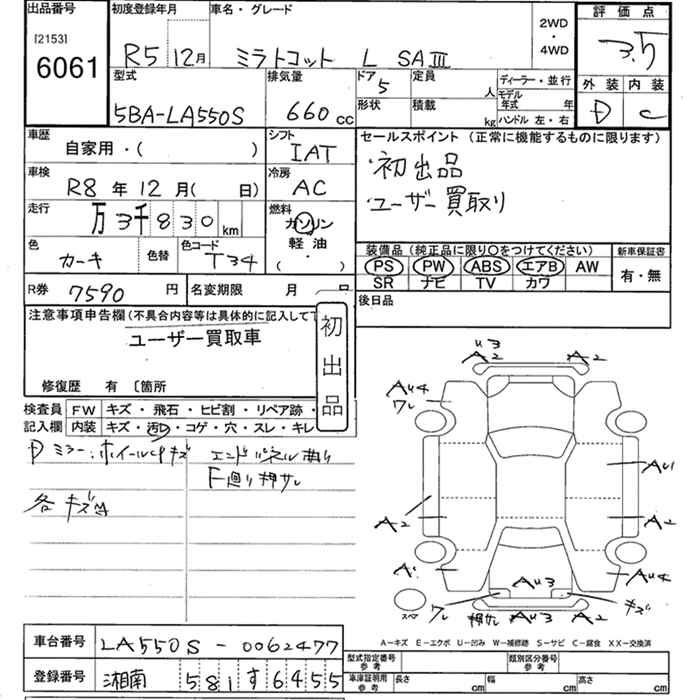 出品番号
[2153]
6061
初度登録年月
R5 12月
車名・グレード
ミラトコット L SAⅢ
2WD
・
4WD
評価点
3.5
外装 内装
D C
型式
5BA-LA550S
排気量
660 cc
ドア
5
形状
定員
人
積載
kg
ディーラー・並行
モデル
年式 年
ハンドル 左・右
車歴
自家用・( )
シフト
IAT
車検
R8 年 12 月( 日)
冷房
AC
走行
万 3千 8 3 0 km
燃料
ガソリン
軽油
( )
色
カーキ
色替
色コード
T34
セールスポイント (正常に機能するものに限ります)
・初出品
・ユーザー買取り
装備品 (純正品に限り○をつけてください)
PS PW ABS エアB AW
SR ナビ TV カワ
新車保証書
有・無
R券 7590 円
名変期限 月 日
後日品
注意事項申告欄 (不具合内容等は具体的に記入して下
ユーザー買取車
初出品
修復歴 有 〔箇所
検査員 FW キズ・飛石・ヒビ割・リペア跡・
記入欄 内装 キズ・汚D・コゲ・穴・スレ・キレ
ミラー・ホイールcpキズ
エンドパネル曲り
F廻り押サレ
各キズ凹
U3
A2 A2
AU4
ワレ
AU1
A2 A2
A1 AU4
AU3
ワレ キズ
押サレ AU3 A2
スペア
A-キズ E-エクボ U-凹み W-補修跡 S-サビ C-腐食 XX-交換済
車台番号 LA550S-0062477
登録番号 湘南 581 す 6455
型式指定番号
参考
類別区分番号
参考
車庫証明用
参考
長さ cm
幅 cm
高さ cm